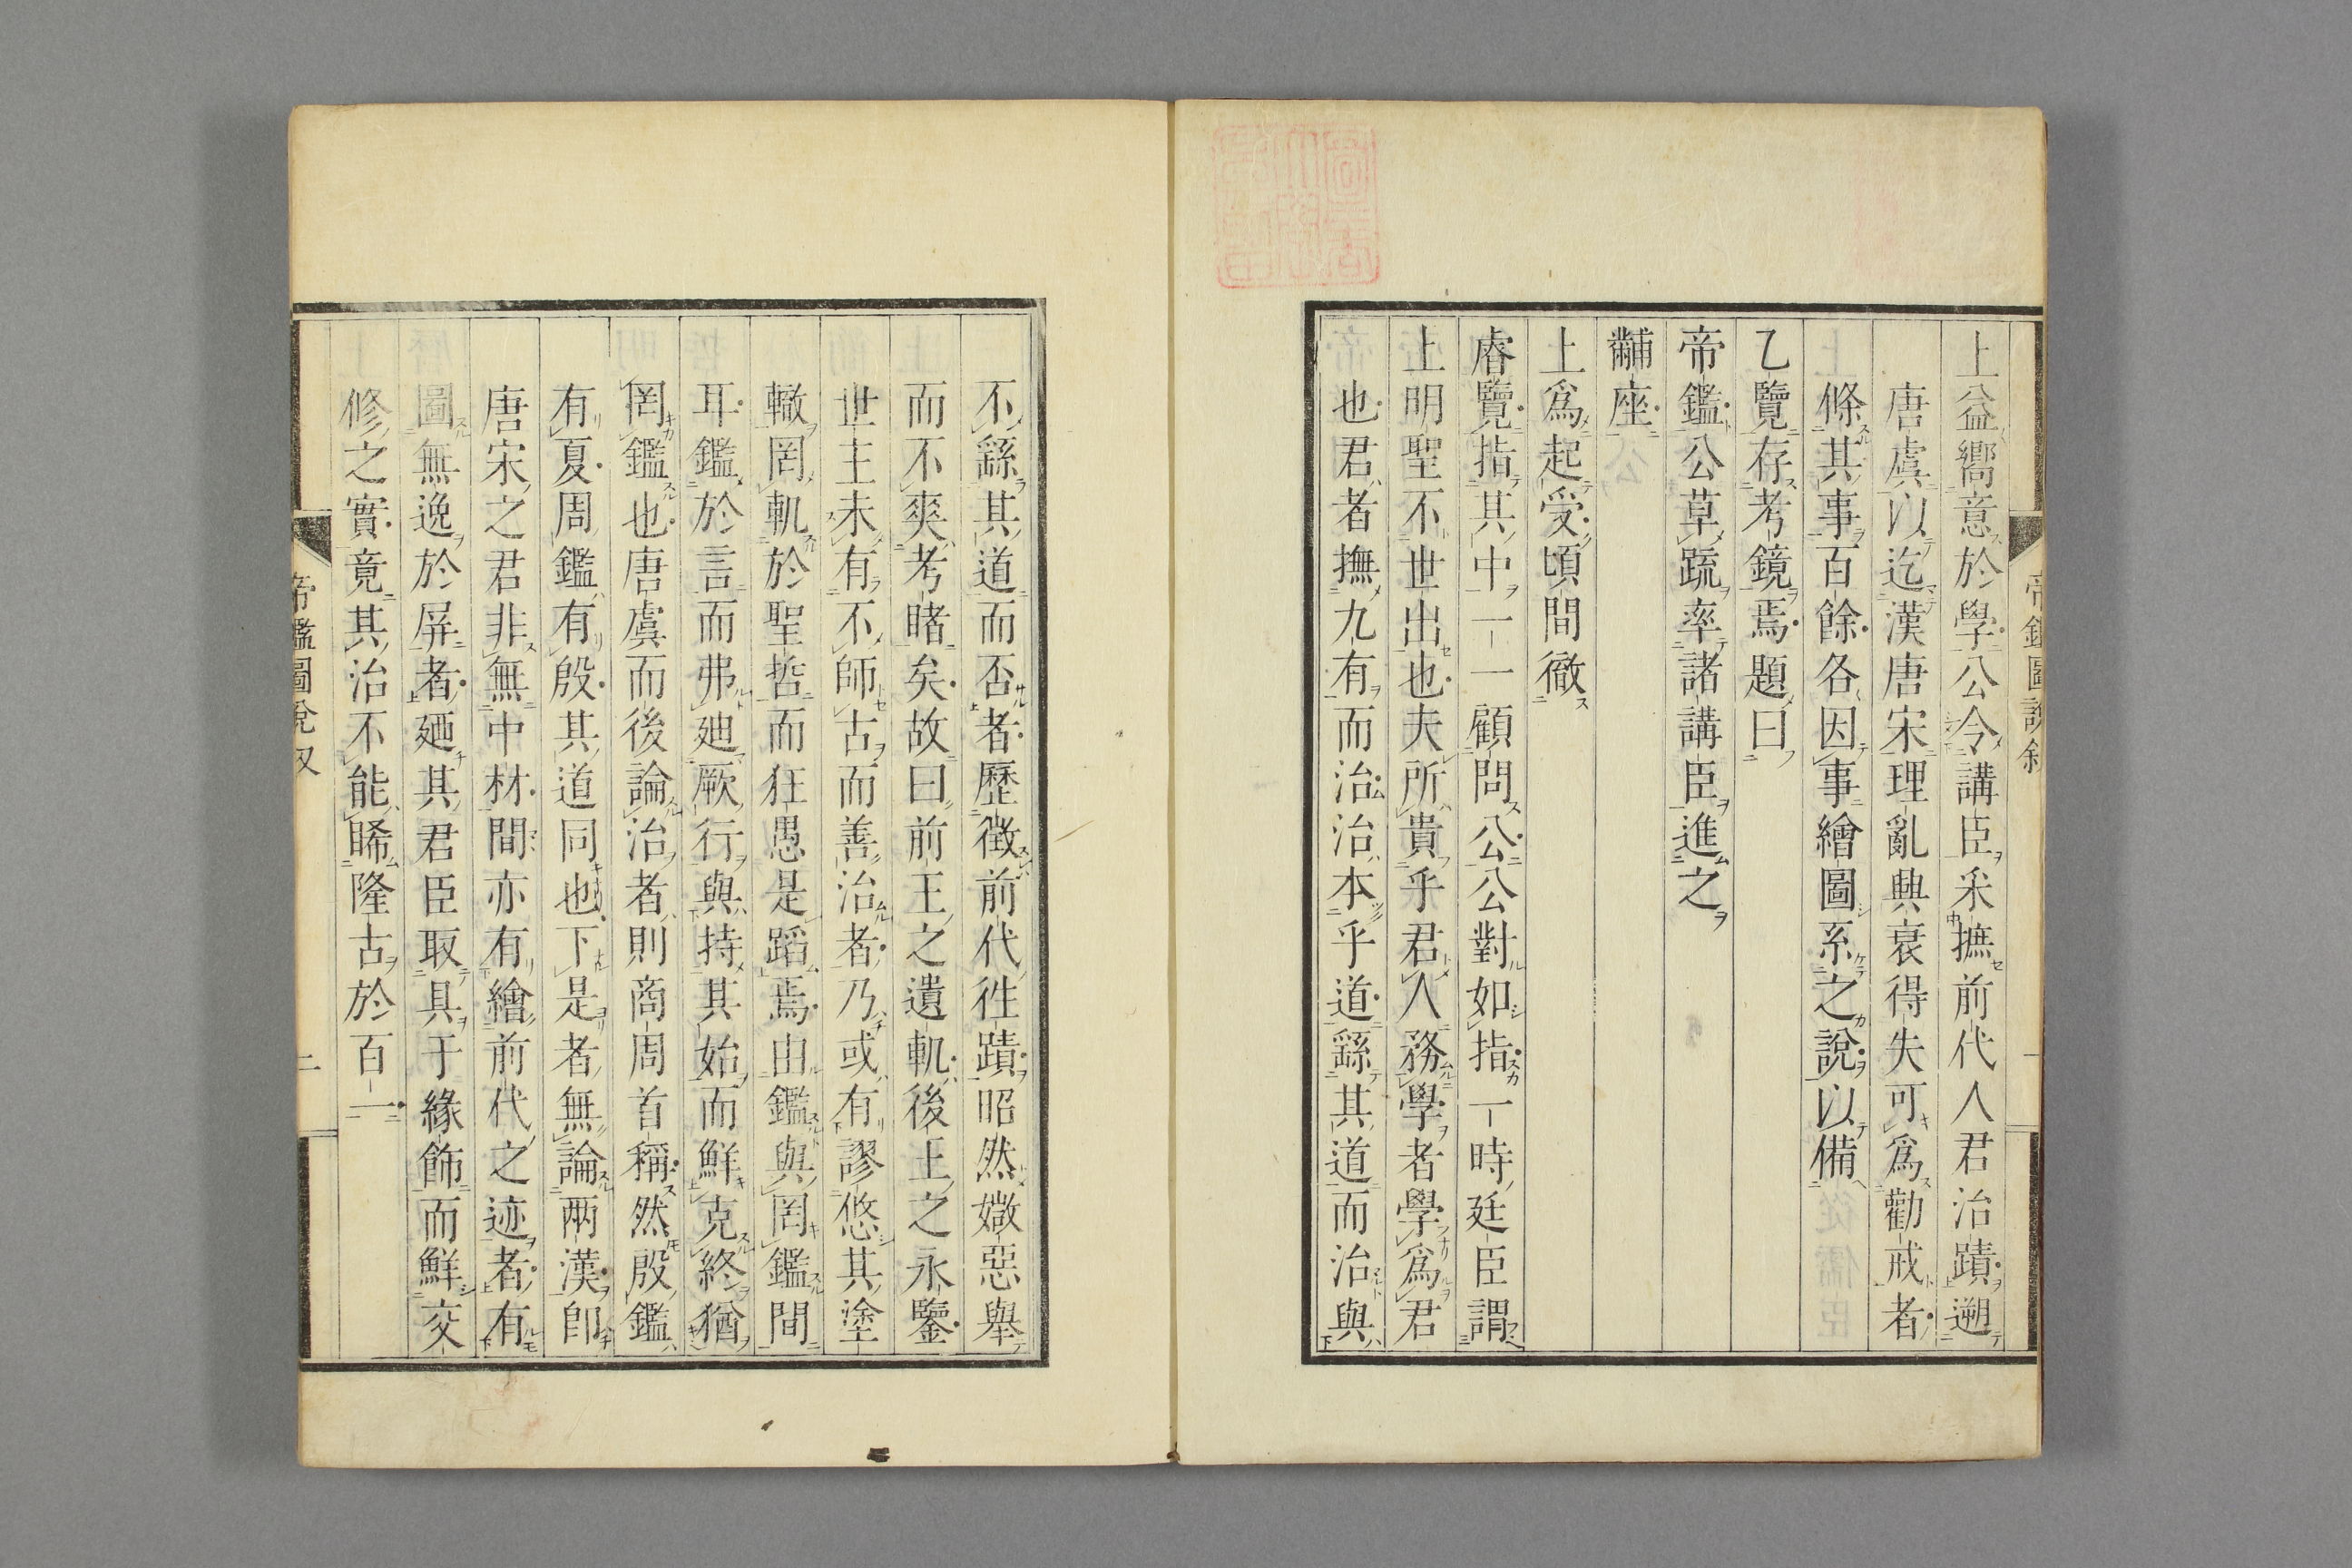 帝鑑圖說敘
一
上益嚮意於學公令講臣采摭前代人君治蹟遡
唐虞以迄漢唐宋理亂興衰得失可爲勸戒者
條其事百餘各因事繪圖系之說以備
乙覽存考鏡焉題曰
帝鑑公草疏率諸講臣進之
黼座
上爲起受頃間徹
睿覽指其中一一顧問公公對如指一時廷臣謂
上明聖不世出也夫所貴乎君人務學者學爲君
也君者撫九有而治治本乎道繇其道而治與
不繇其道而否者歷徵前代徃蹟昭然媺惡舉
而不爽考睹矣故曰前王之遺軌後王之永鑒
世主未有不師古而善治者乃或有謬悠其塗
轍罔軌於聖哲而狂愚是蹈焉由鑑與罔鑑間
耳鑑於言而弗廸厥行與持其始而鮮克終猶
罔鑑也唐虞而後論治者則商周首稱然殷鑑
有夏周鑑有殷其道同也下是者無論兩漢卽
唐宋之君非無中材間亦有繪前代之迹者有
圖無逸於屏者廼其君臣取具于緣飾而鮮交
修之實竟其治不能晞隆古於百一
帝鑑圖說叙
二